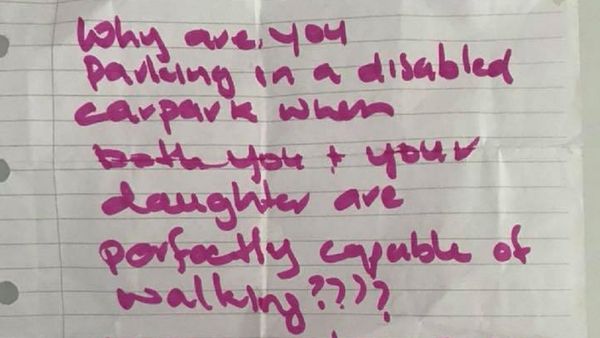 Why are you
Parking in a disabled
carpark when
both you + your
daughter are
perfectly capable of
walking????